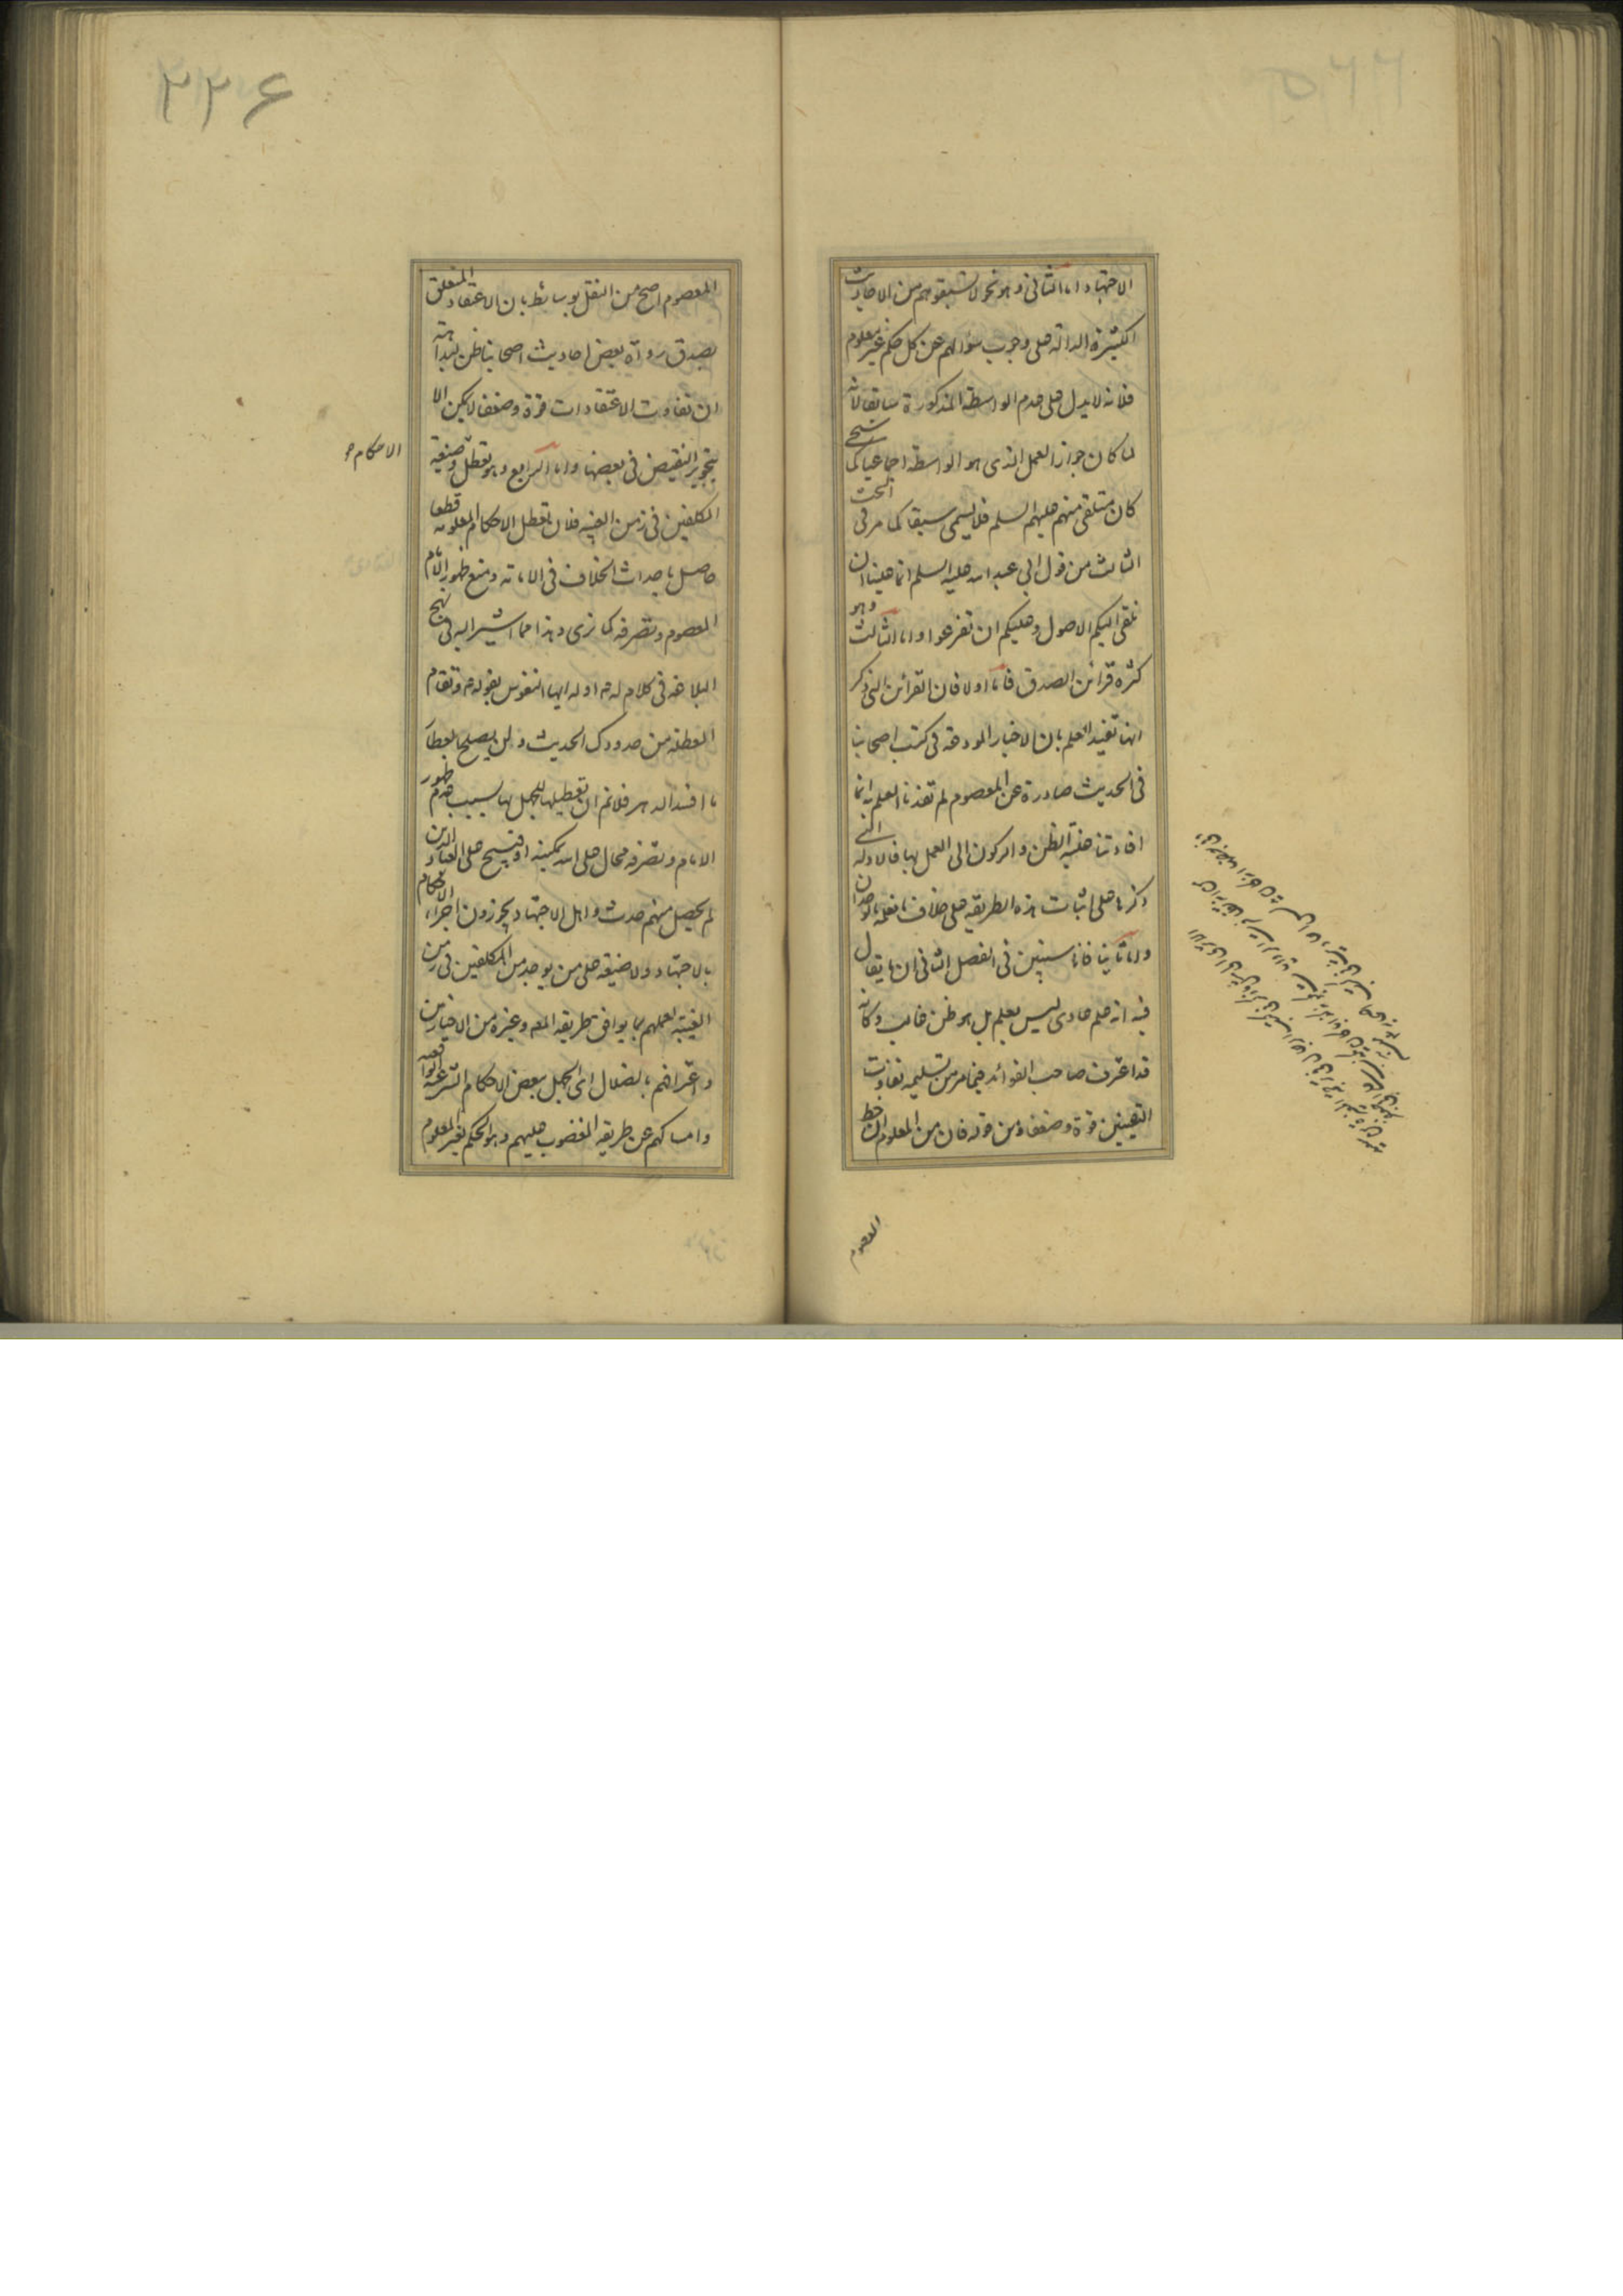 الاجتهاد واما الثانی وهو نحو لا تسبقوهم من الاحادیث
الکثیرة الدالة علی وجوب سؤالهم عن کل حکم غیر معلوم
فلانه لا یدل علی عدم الواسطة المذکورة سابقا لانه
لما کان جواز العمل الذی هو الواسطة اجماعیا کما
کان متلقی منهم علیهم السلم فلا یسمی سبقا کما مر فی
الثالث من قول ابی عبد الله علیه السلم انما علینا ان
نلقی الیکم الاصول وعلیکم ان تفرعوا واما الثالث وهو
کثرة قرائن الصدق فاما اولا فان القرائن التی ذکر
انها تفید العلم بان الاخبار المودعة فی کتب اصحابنا
فی الحدیث صادرة عن المعصوم لم تفدنا العلم به انما
افادتنا غلبة الظن والرکون الی العمل بها فالادلة التی
ذکرها علی اثبات هذه الطریقة علی خلاف ما نعلمه بالوجدان
واما ثانیا فانا سنبین فی الفصل الثانی ان ما یقال
فیه انه علم عادی لیس بعلم بل هو ظن غالب وکانه
قد اعترف صاحب الفوائد فیما مر من تسلیمه تفاوت
الیقینین قوة وضعفا ومن قوله فان من المعلوم ان خط
المعصوم
۲۲۶
المعصوم اصح من النقل بوسائط بان الاعتقاد المتعلق
بصدق رواة بعض احادیث اصحابنا ظن لبداهة
ان تفاوت الاعتقادات قوة وضعفا لا یکون الا
بتجویز النقیض فی بعضها واما الرابع وهو تعطل وضیعة
الاحکام
المکلفین فی زمن الغیبة فلان تعطل الاحکام المعلومة قطعا
حاصل باحداث الخلاف فی الامامة ومنع ظهور الامام
المعصوم وتصرفه کما نری وهذا مما اشیر الیه فی نهج
البلاغة فی کلام له م اوله ایها النفوس بقوله م وتقام
المعطلة من حدودک الحدیث ولن یصلح العطار
ما افسد الدهر فلا نم ان تعطیلها للجهل بها بسبب عدم ظهور
الامام وتصرفه محال علی الله یمکنه او قبیح علی العباد الذین
لم یحصل منهم حدث واهل الاجتهاد یجوزون اجراء الاحکام
بالاجتهاد ولا ضیعة علی من یوجد من المکلفین فی زمن
الغیبة لعملهم بما یوافق طریقة المعه وغیره من الاخبار من
واعترافهم بالضلال ای الجهل ببعض الاحکام الشرعیة الواقعیة
وامساکهم عن طریقة المغضوب علیهم وهو الحکم بغیر المعلوم